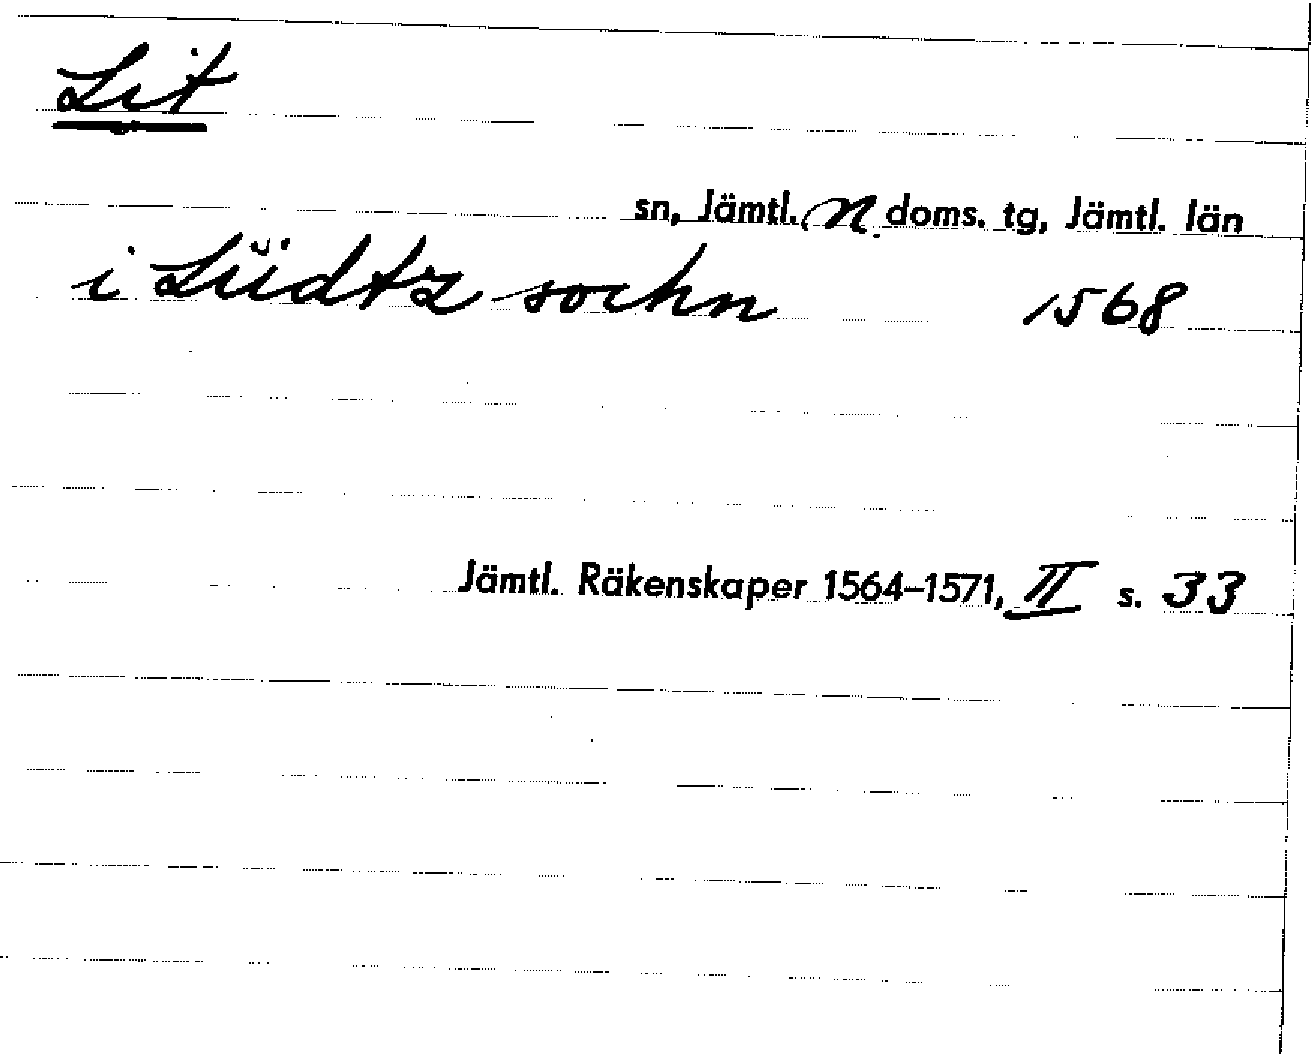 Lit
sn, Jämtl. n. doms. tg, Jämtl. län
i Lüdtz sochn 1568
Jämtl. Räkenskaper 1564–1571, II s. 33